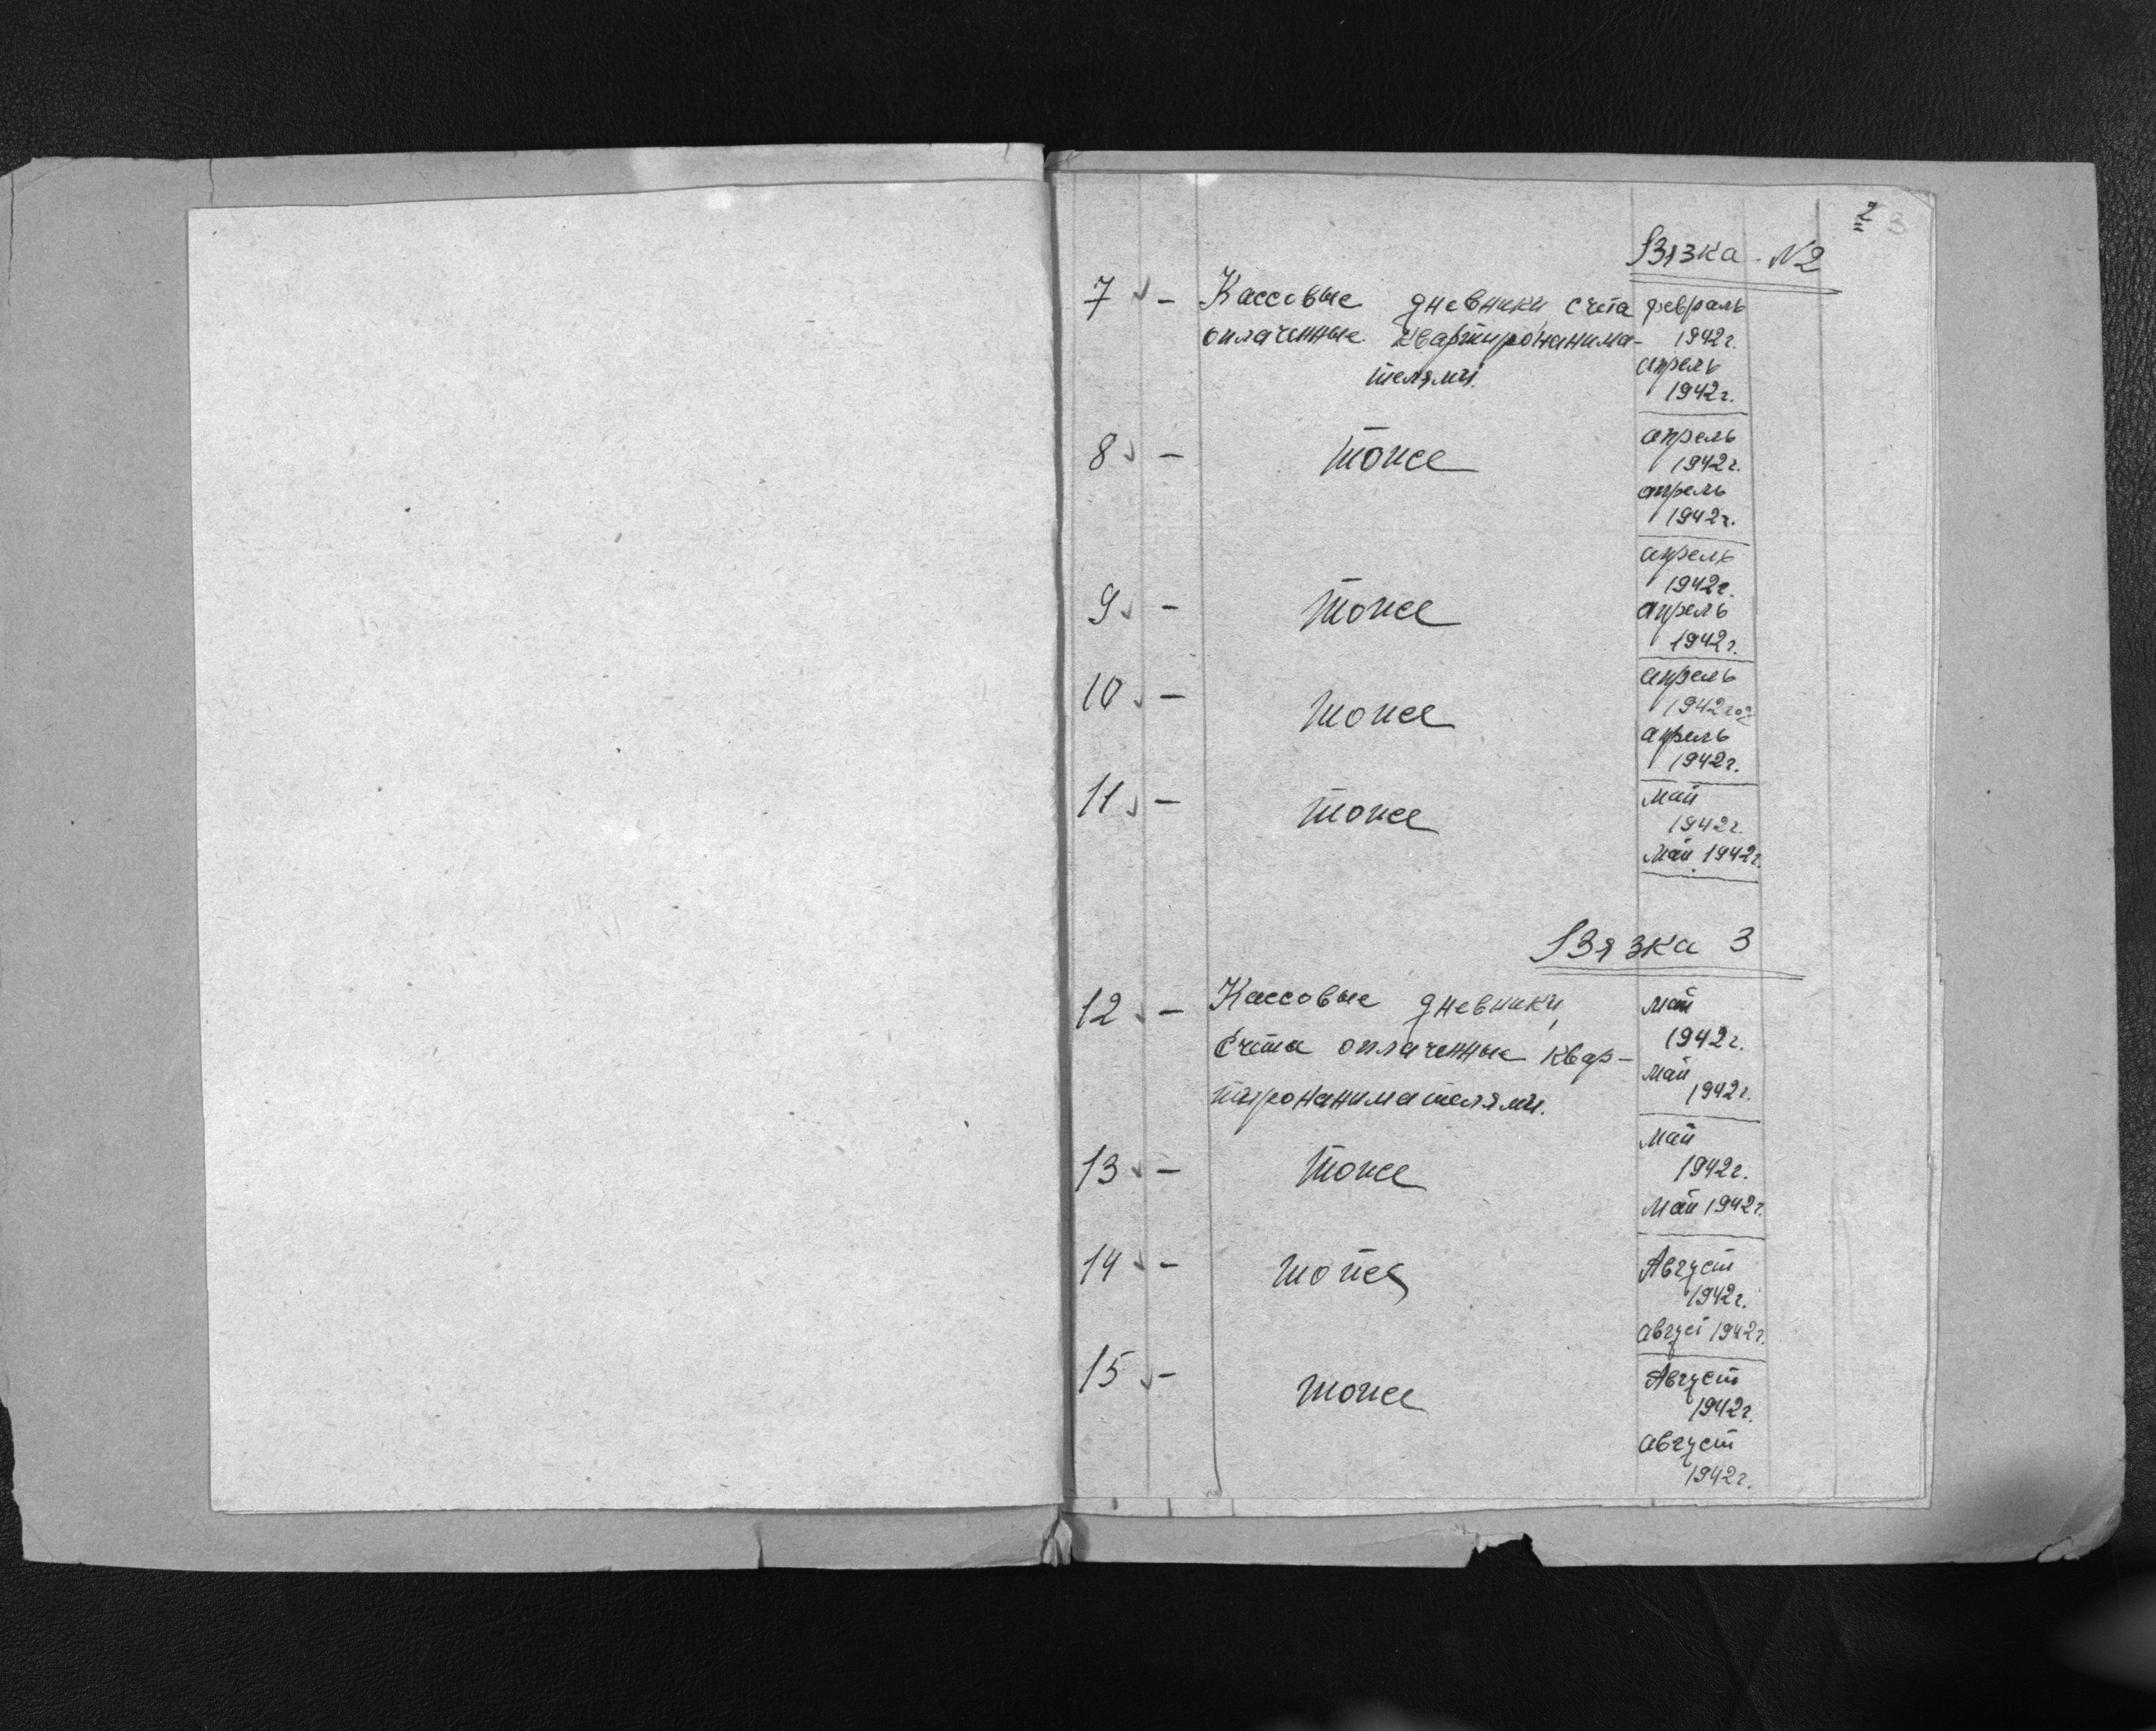 2 3
Вязка - N2
7 - Кассовые дневники, счета февраль
оплаченные квартиронанима- 1942г.
телями. апрель
1942г.
апрель
8 - тоже 1942г.
апрель
1942г.
апрель
1942г.
9 - тоже апрель
1942г.
апрель
10 - тоже 1942год
апрель
1942г.
май
11 - тоже 1942г.
Май 1942г.
Вязка 3
12 - Кассовые дневники, май
счета оплаченные квар- 1942г.
тиронанимателями. май
1942г.
май
13 - тоже 1942г.
Май 1942г.
14 - тоже Август
1942г.
август 1942г.
15 - тоже Август
1942г.
август
1942г.